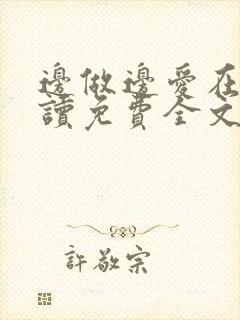 邊做邊愛在
讀免費全文
許敬宗